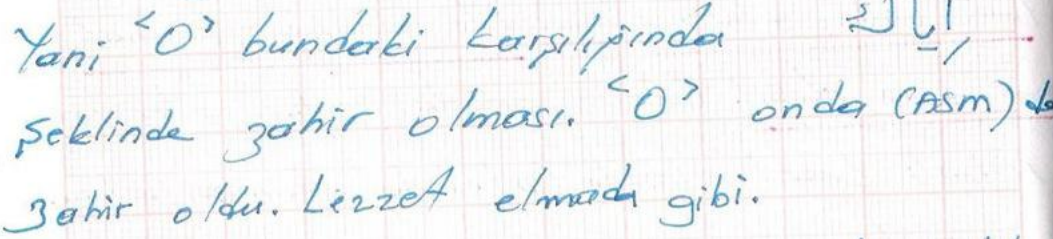 Yani <O> bundaki karşılığında
şeklinde zahir olması. <O> onda (ASM) da
zahir oldu. Lezzet elmada gibi.